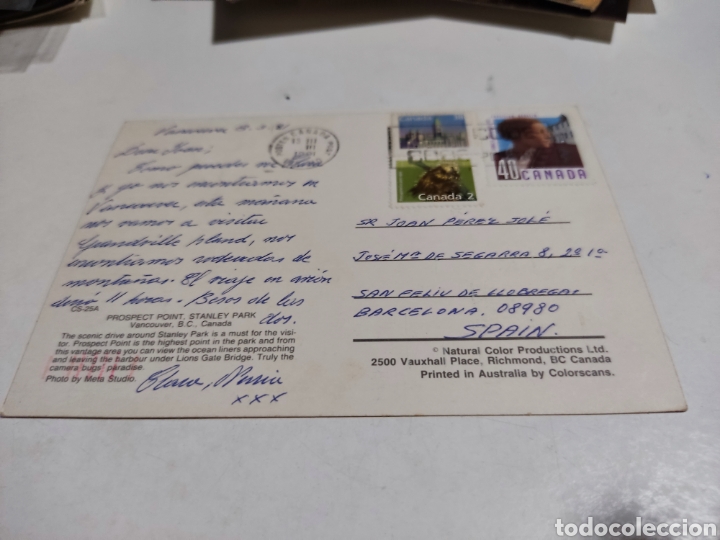 Vancouver
Como puedes ver Olivia
y yo nos encontramos en
Vancouver, esta mañana
nos vamos a visitar
Grandville Island, nos
encontramos rodeadas de
montañas. El viaje en avión
duró 11 horas. Besos de las
dos.
CS-25A
PROSPECT POINT, STANLEY PARK
Vancouver, B.C., Canada
The scenic drive around Stanley Park is a must for the visi-
tor. Prospect Point is the highest point in the park and from
this vantage area you can view the ocean liners approaching
and leaving the harbour under Lions Gate Bridge. Truly the
camera bugs' paradise.
Photo by Meta Studio.
xxx
CANADA
Canada 2
40
CANADA
SR JOAN PÉREZ JOLÉ
JOSÉ Mª DE SEGARRA 8, 2º 1ª
SAN FELIU DE LLOBREGAT
BARCELONA. 08980
SPAIN.
© Natural Color Productions Ltd.
2500 Vauxhall Place, Richmond, BC Canada
Printed in Australia by Colorscans.
todocoleccion